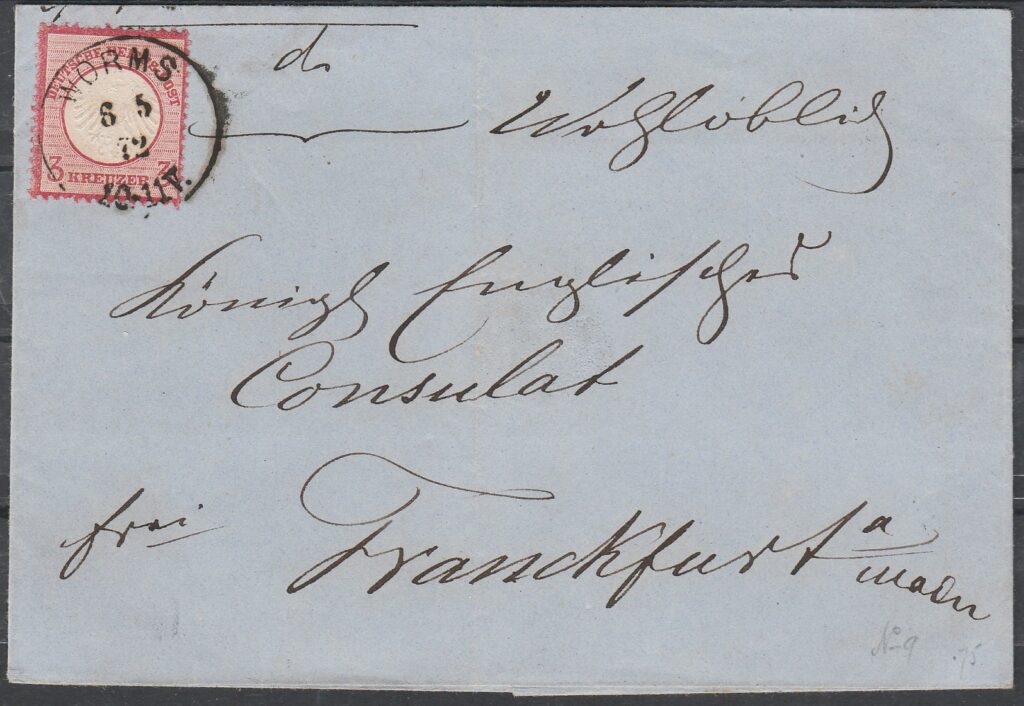 DEUTSCHE REICHS-POST
3 KREUZER 3
WORMS
6 5
72
10-11V.
d.
Wohllöblich
Königl Englisches
Consulat
frei
Franckfurt a
main
No 9
.75